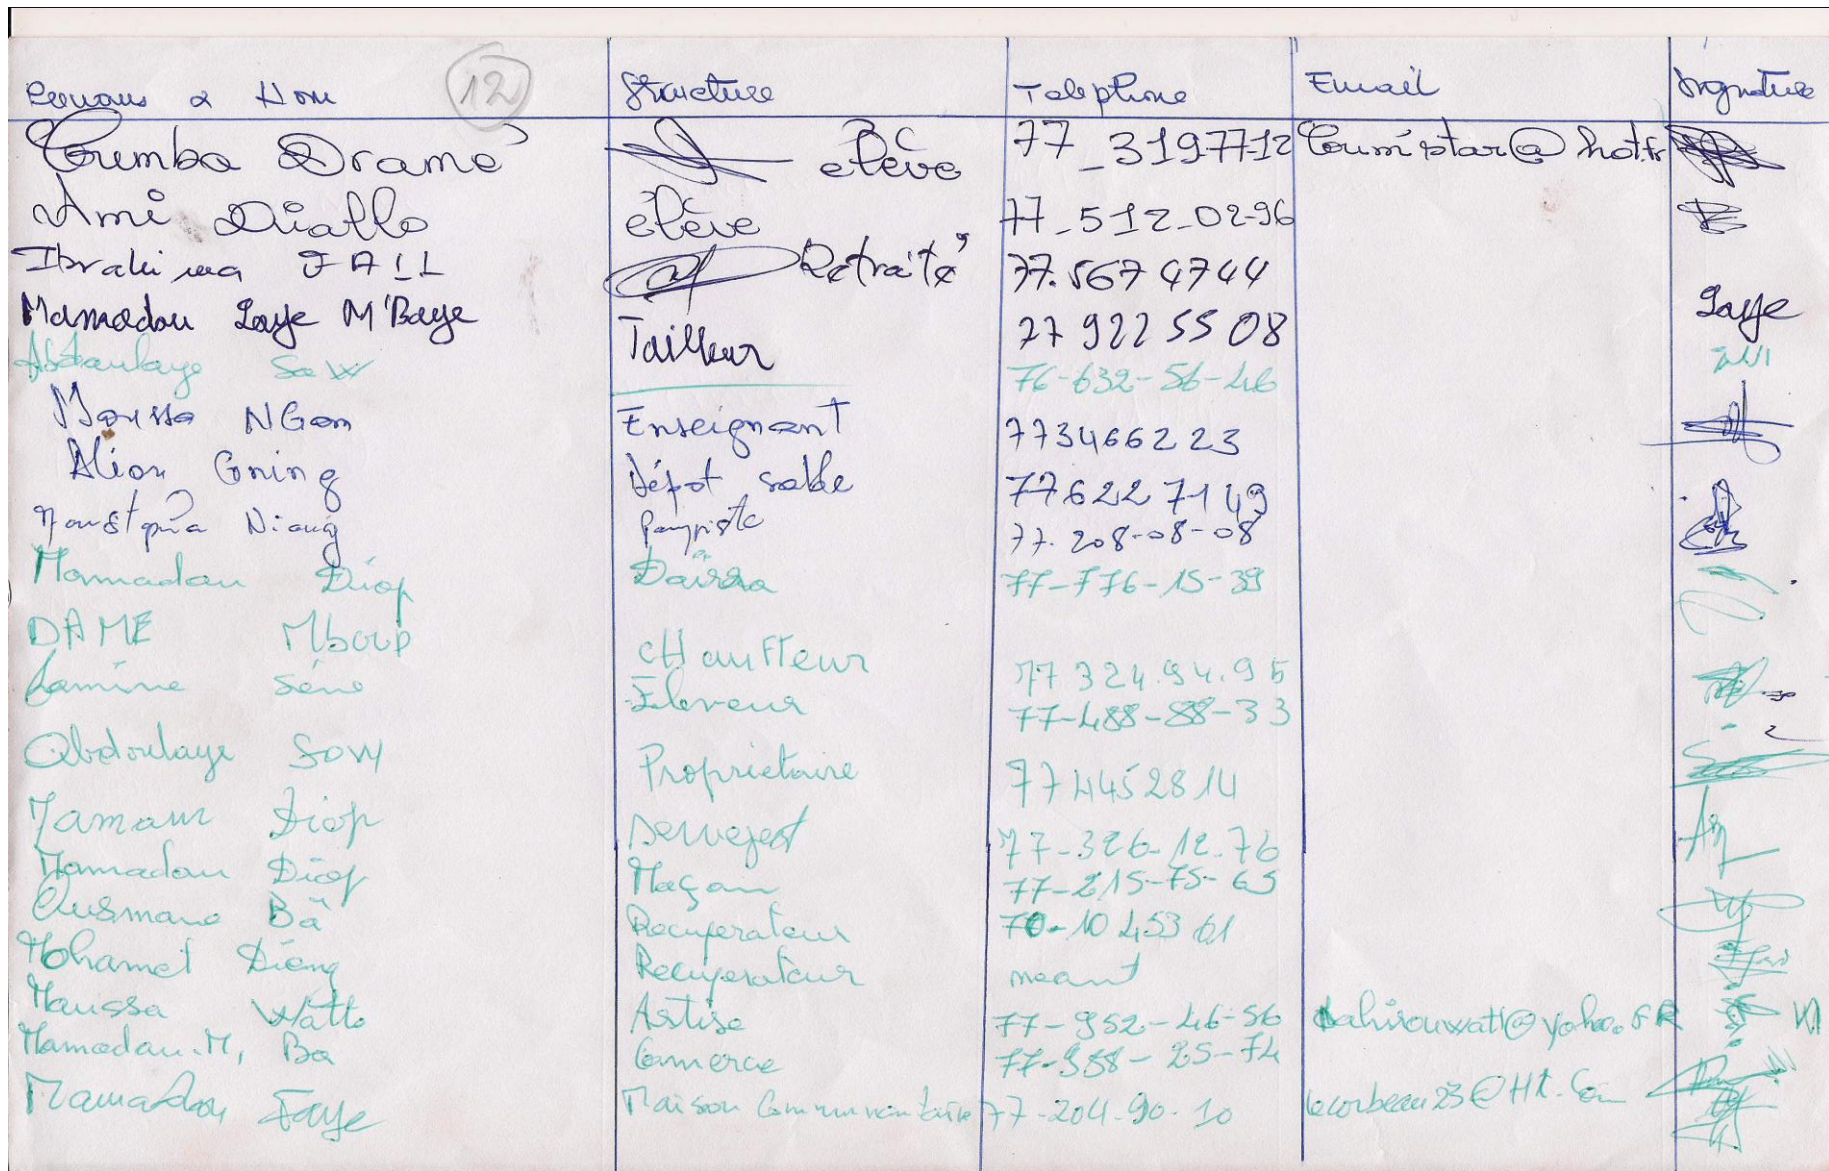 Prenoms & Nom 12 Structure Telephone Email Signature
Coumba Dramé elève 77_3197712 Coumistar@hot.fr
Ami Diallo elève 77_512_02-96
Ibrahima FALL Retraité 77.567 4744
Mamadou Laye M'Baye Tailleur 77 922 55 08 Laye
Abdoulaye Sow 76-632-56-46
Moussa NGom Enseignant 773466223
Alion Gning Dépot sable 776227149
Moustpha Niang 77-208-08-08
Mamadou Diop Daïrra 77-776-15-39
DAME Mboup cHauffeur 77 324.94.95
Lamine Séne Eleveur 77-488-88-33
Abdoulaye Sow Proprietaire 774452814
Mamour Diop 77-326-12-76
Mamadou Diop Maçon 77-215-75-65
Ousmane Bâ Recuperateur 70-10 453 61
Mohamet Dieng Recuperateur neant
Moussa Watto Artise 77-952-46-56
Mamadou.M, Ba Comerce 77-958-25-74
Mamadou Faye Maison Communnautaire 77-204-90-10 lecorbeau23@Ht.Com